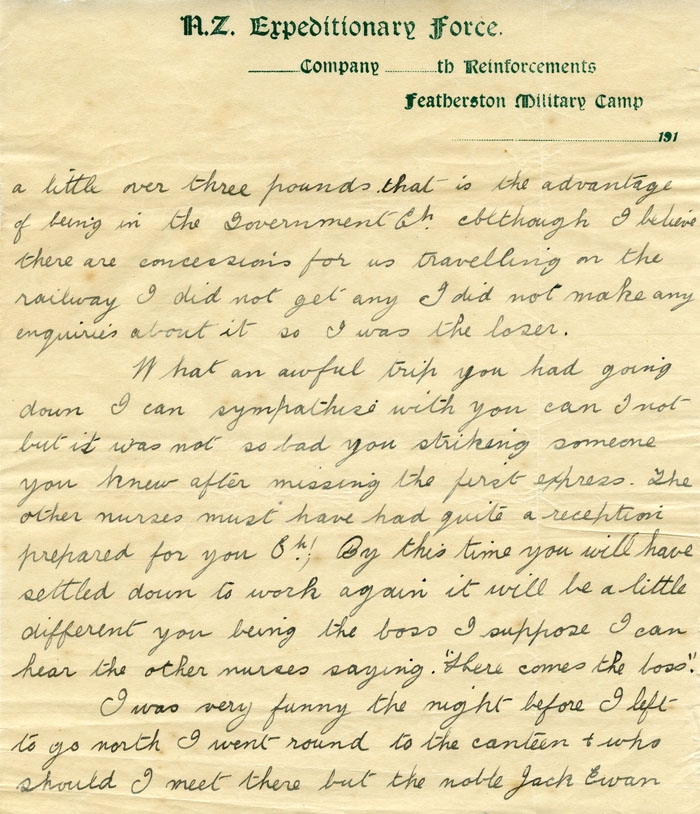 N.Z. Expeditionary Force.
Company th Reinforcements
Featherston Military Camp
191
a little over three pounds that is the advantage
of being in the Government Eh. although I believe
there are concessions for us travelling on the
railway I did not get any I did not make any
enquiries about it so I was the loser.
What an awful trip you had going
down I can sympathise with you can I not
but it was not so bad you striking someone
you knew after missing the first express. The
other nurses must have had quite a reception
prepared for you Eh! By this time you will have
settled down to work again it will be a little
different you being the boss I suppose I can
hear the other nurses saying. "Here comes the boss".
I was very funny the night before I left
to go north I went round to the canteen + who
should I meet there but the noble Jack Ewan